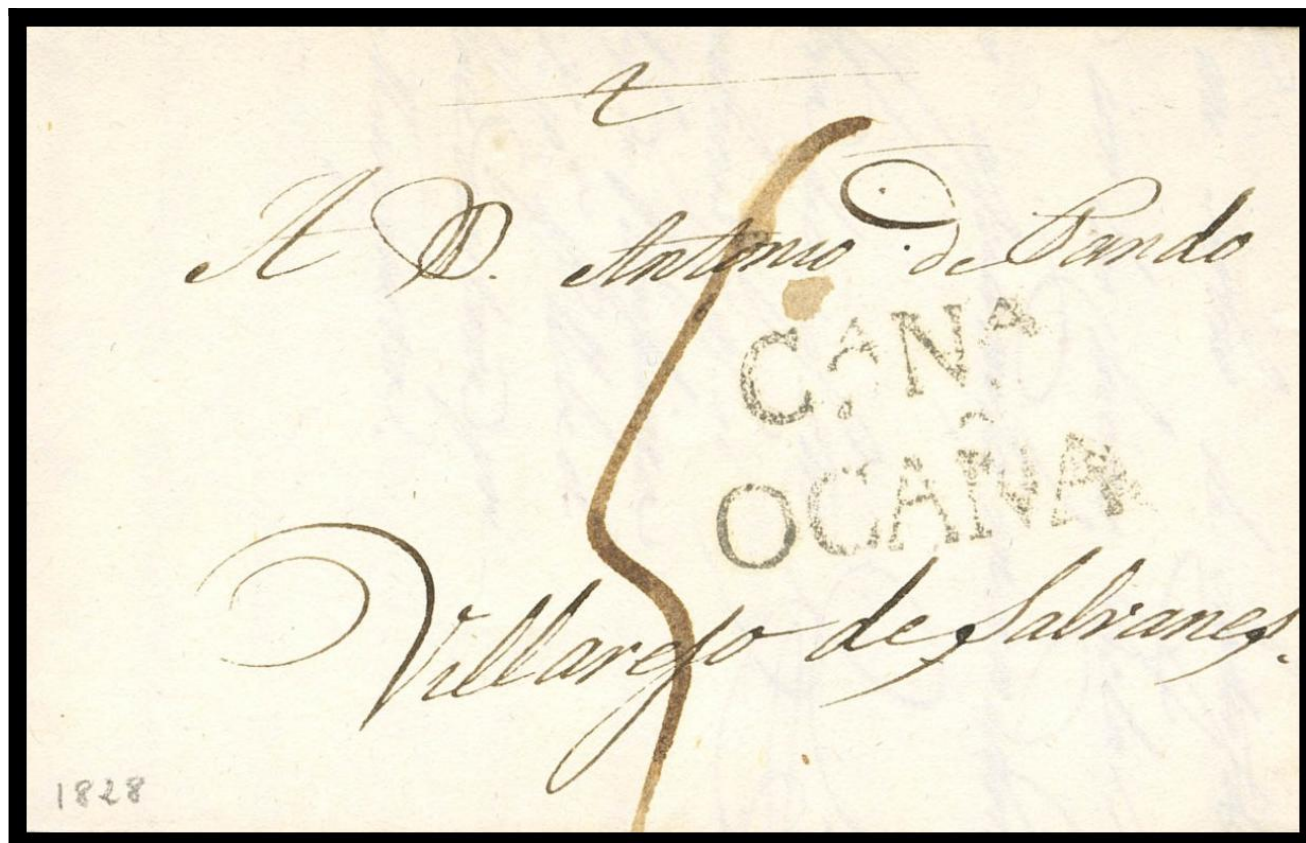 A D. Antonio de Pando
CANA
OCAÑA
Villarejo de Salvanes.
1828